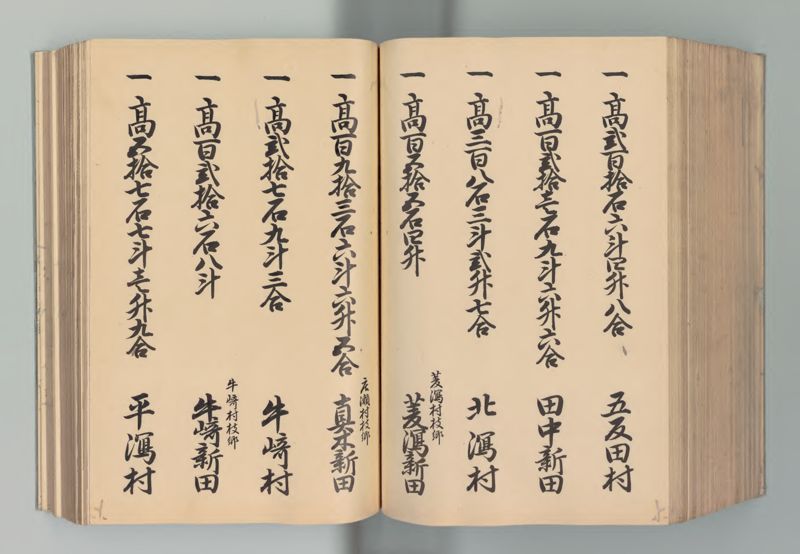 一 高弐百拾石六斗四升八合 五反田村
一 高百弐拾壱石九斗六升六合 田中新田
一 高三百八石三斗弐升七合 北潟村
一 高百五拾五石四升
菱潟村枝郷
菱潟新田
一 高百九拾三石六斗六升五合
広瀬村枝郷
真木新田
一 高弐拾七石九斗三合 牛崎村
一 高百弐拾六石八斗
牛崎村枝郷
牛崎新田
一 高五拾七石七斗壱升九合 平潟村